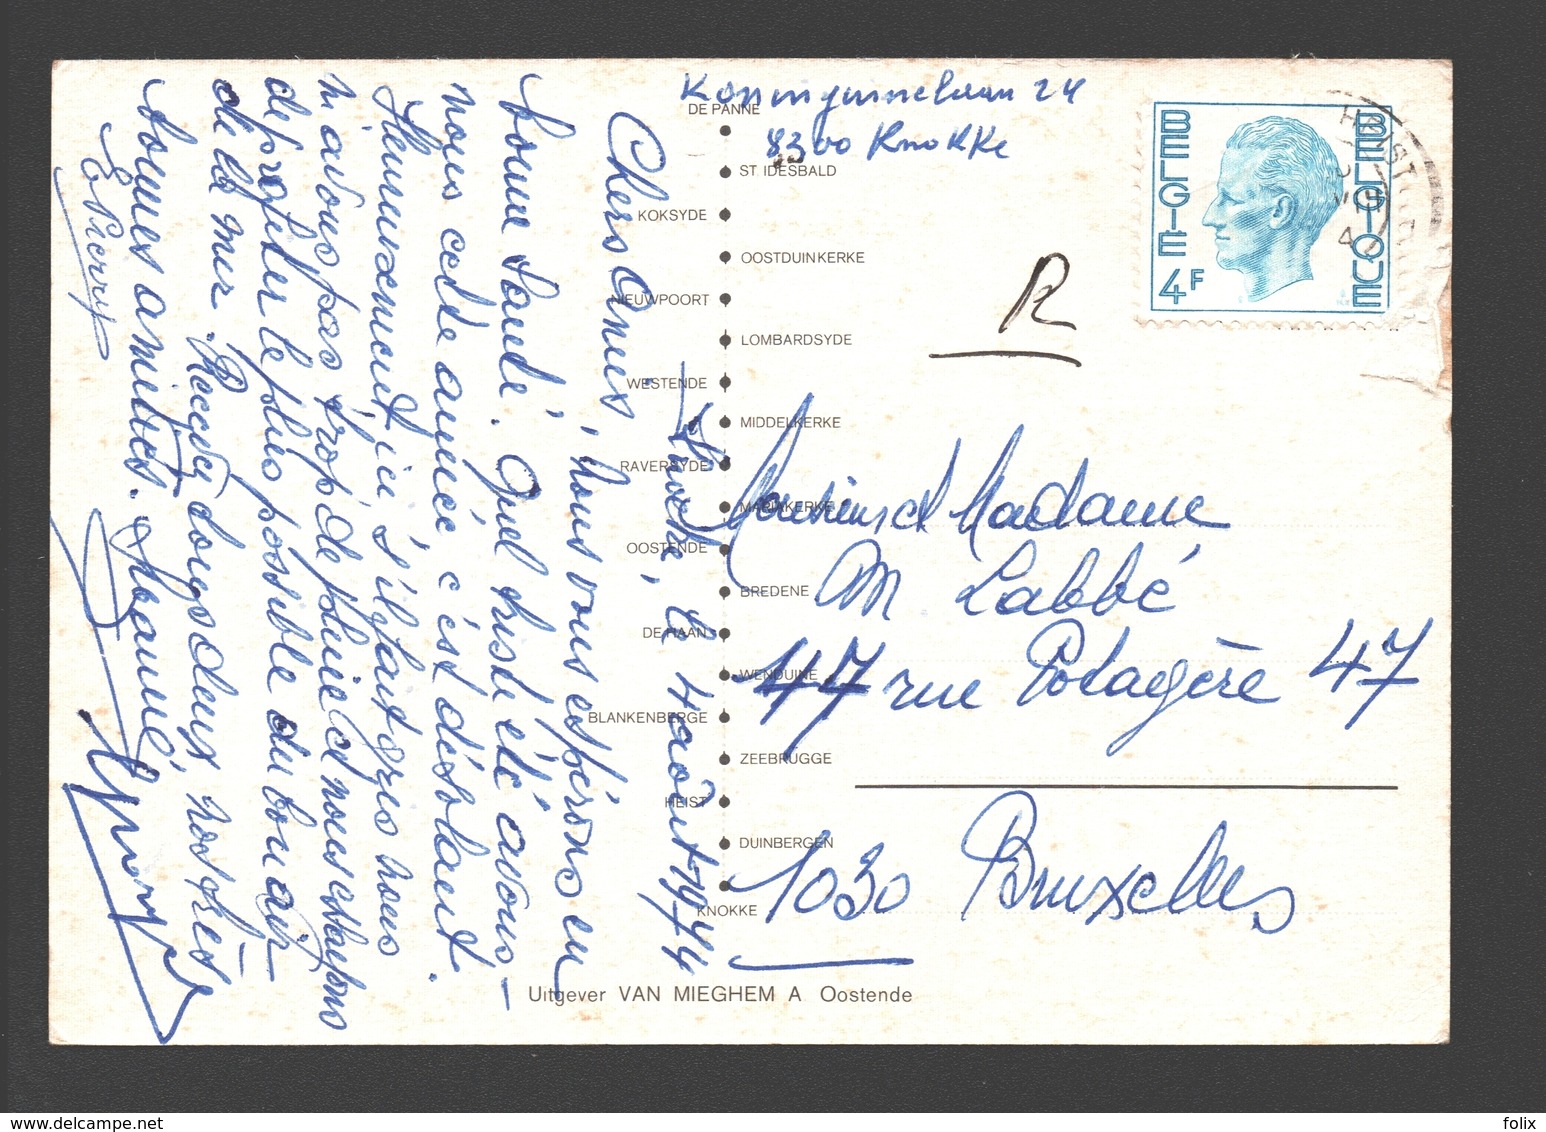 Koninginnelaan 24
8300 Knokke
Knocke, le 4 août 1974
Chers Amis, Nous vous espérons en
bonne santé. Quel triste été avons-
nous cette année c'est désolant.
Heureusement ici, s'il fait gris nous
n'avons pas trop de pluie et nous essayons
de profiter le plus possible du bon air
de la mer. Recevez doux deux nos très
bonnes amitiés.
Pierry
R
Monsieur et Madame
M Labbé
47 rue Potagère 47
1030 Bruxelles
BELGIE
BELGIQUE
4F
HEIST
DE PANNE
ST IDESBALD
KOKSYDE
OOSTDUINKERKE
NIEUWPOORT
LOMBARDSYDE
WESTENDE
MIDDELKERKE
RAVERSYDE
MARIAKERKE
OOSTENDE
BREDENE
DE HAAN
WENDUINE
BLANKENBERGE
ZEEBRUGGE
HEIST
DUINBERGEN
KNOKKE
Uitgever VAN MIEGHEM A Oostende
www.delcampe.net
folix